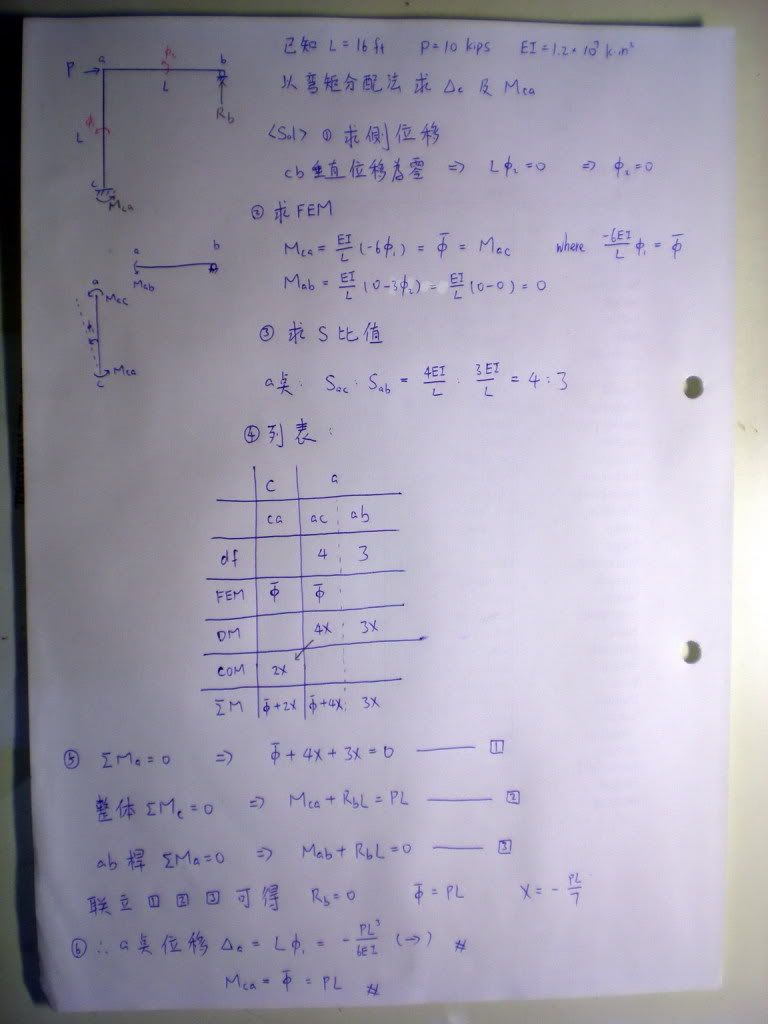 已知 L = 16 ft P = 10 kips EI = 1.2 × 10⁷ k·in²
以弯矩分配法求 Δc 及 Mca
<Sol> ① 求侧位移
cb 垂直位移為零 ⇒ Lφ₂ = 0 ⇒ φ₂ = 0
P a φ₂ b
L
Rb
φ₁
L
c
Mca
② 求 FEM
Mca = EI/L (-6φ₁) = φ̄ = Mac where -6EI/L φ₁ = φ̄
Mab = EI/L (0-3φ₂) = EI/L (0-0) = 0
a b
Mab
a
Mac
c Mca
③ 求 S 比值
a点: Sac : Sab = 4EI/L : 3EI/L = 4 : 3
④ 列表:
c a
ca ac ab
df 4 3
FEM φ̄ φ̄
DM 4x 3x
COM 2x
ΣM φ̄+2x φ̄+4x 3x
⑤ ΣMa = 0 ⇒ φ̄ + 4x + 3x = 0 —— 1
整体 ΣMc = 0 ⇒ Mca + RbL = PL —— 2
ab 桿 ΣMa = 0 ⇒ Mab + RbL = 0 —— 3
联立 1 2 3 可得 Rb = 0 φ̄ = PL x = - PL/7
⑥ ∴ a点位移 Δa = Lφ₁ = - PL³/6EI (→) #
Mca = φ̄ = PL #